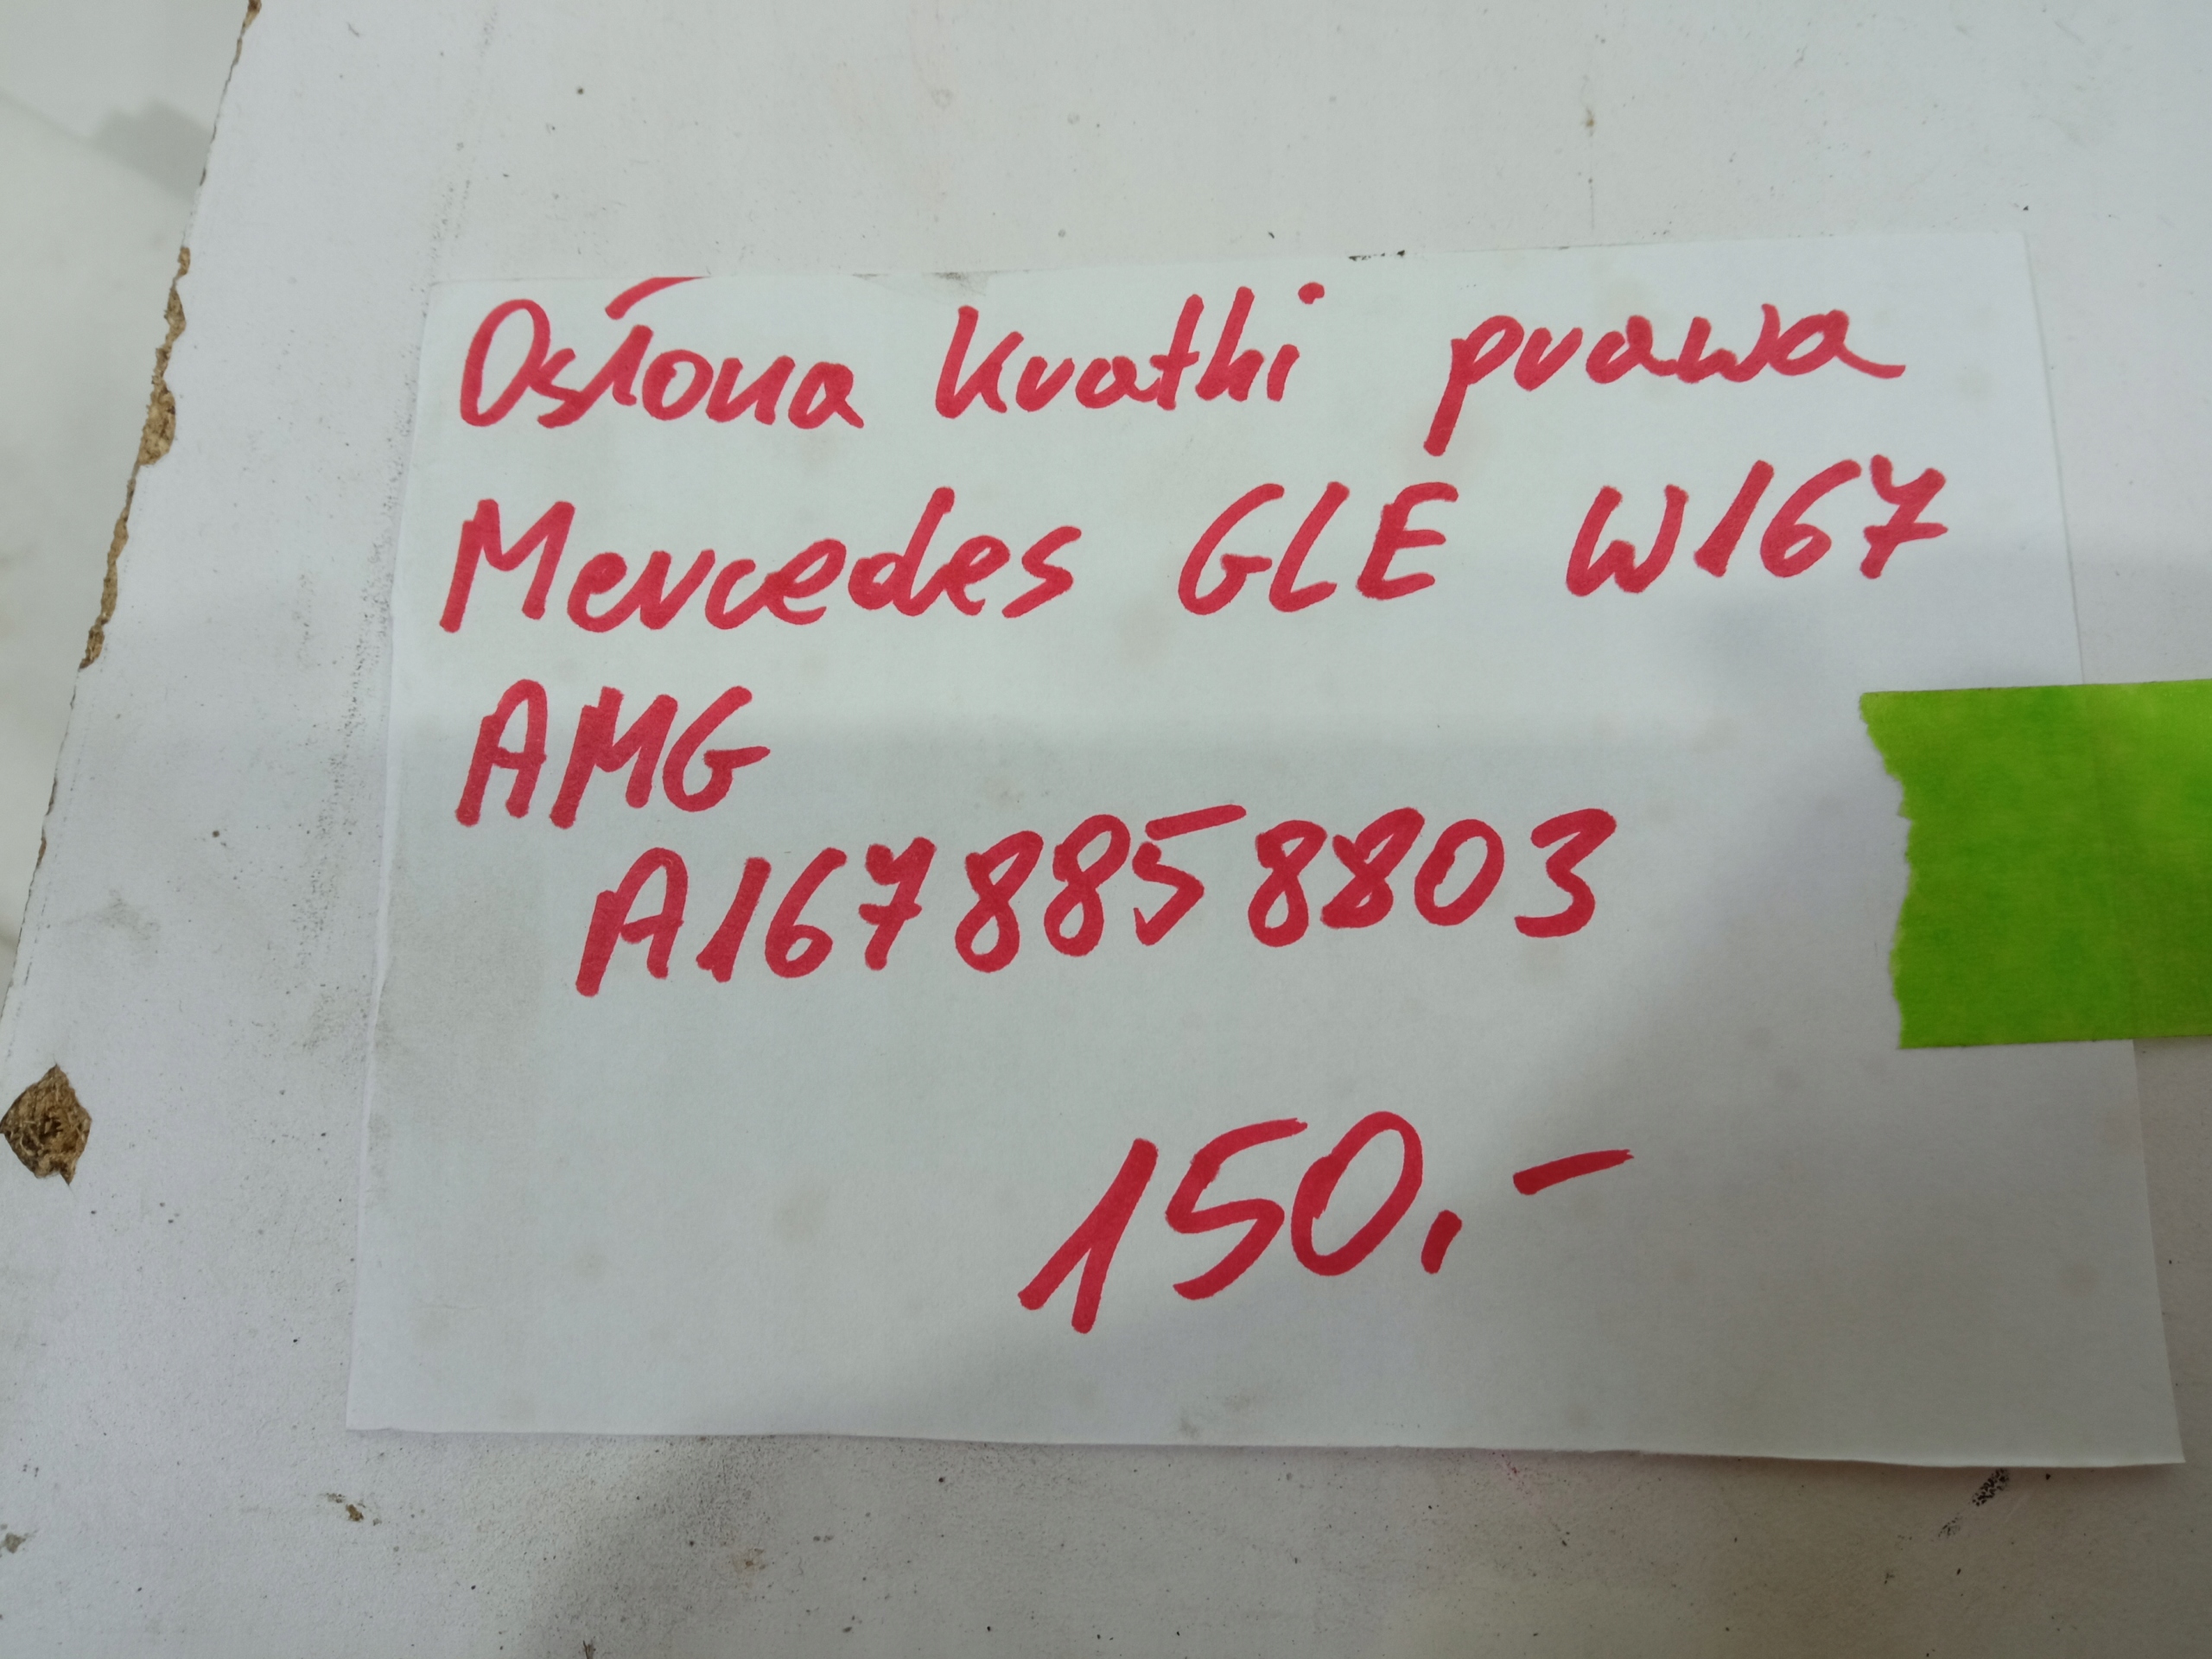 Osłona kratki prawa
Mercedes GLE W167
AMG
A1678858803
150.-